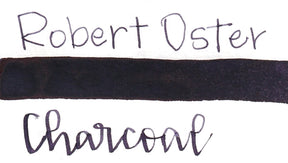 Robert Oster
Charcoal